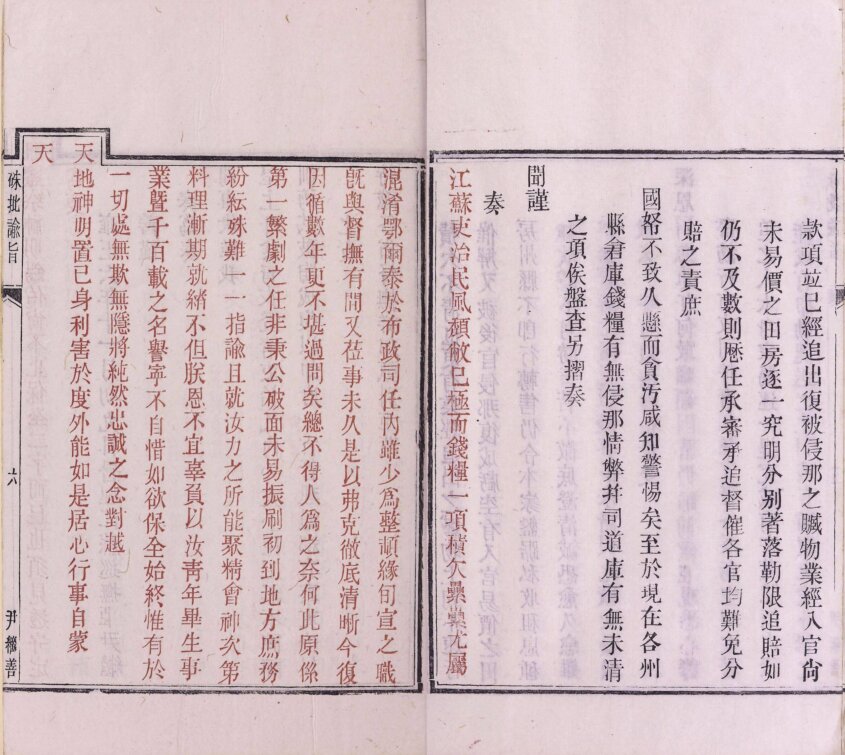 款項並已經追出復被侵那之贓物業經入官尙
未易價之田房逐一究明分别著落勒限追賠如
仍不及數則歷任承審承追督催各官均難免分
賠之責庶
國帑不致久懸而貪汚咸知警惕矣至於現在各州
縣倉庫錢糧有無侵那情弊并司道庫有無未清
之項俟盤查另摺奏
聞謹
奏
江蘇吏治民風頹敝已極而錢糧一項積欠纍纍尤屬
混淆鄂爾泰於布政司任內雖少爲整頓緣旬宣之職
旣與督撫有間又莅事未久是以弗克徹底清晰今復
因循數年更不堪過問矣總不得人爲之奈何此原係
第一繁劇之任非秉公破面未易振刷初到地方庶務
紛紜殊難一一指諭且就汝力之所能聚精會神次第
料理漸期就緒不但朕恩不宜辜負以汝靑年畢生事
業曁千百載之名譽寧不自惜如欲保全始終惟有於
一切處無欺無隱將純然忠誠之念對越
天地神明置已身利害於度外能如是居心行事自蒙
天
硃批諭旨
六
尹繼善